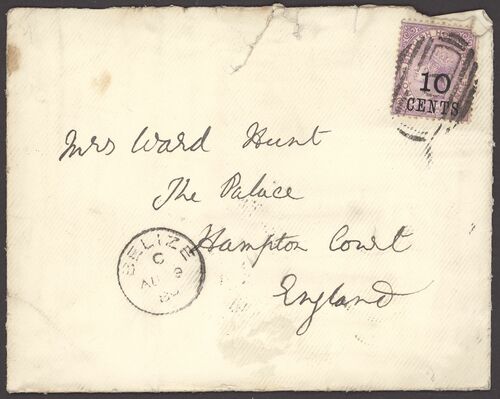 BRITISH
10
CENTS
Mrs Ward Hunt
The Palace
Hampton Court
England
BELIZE
C
AU